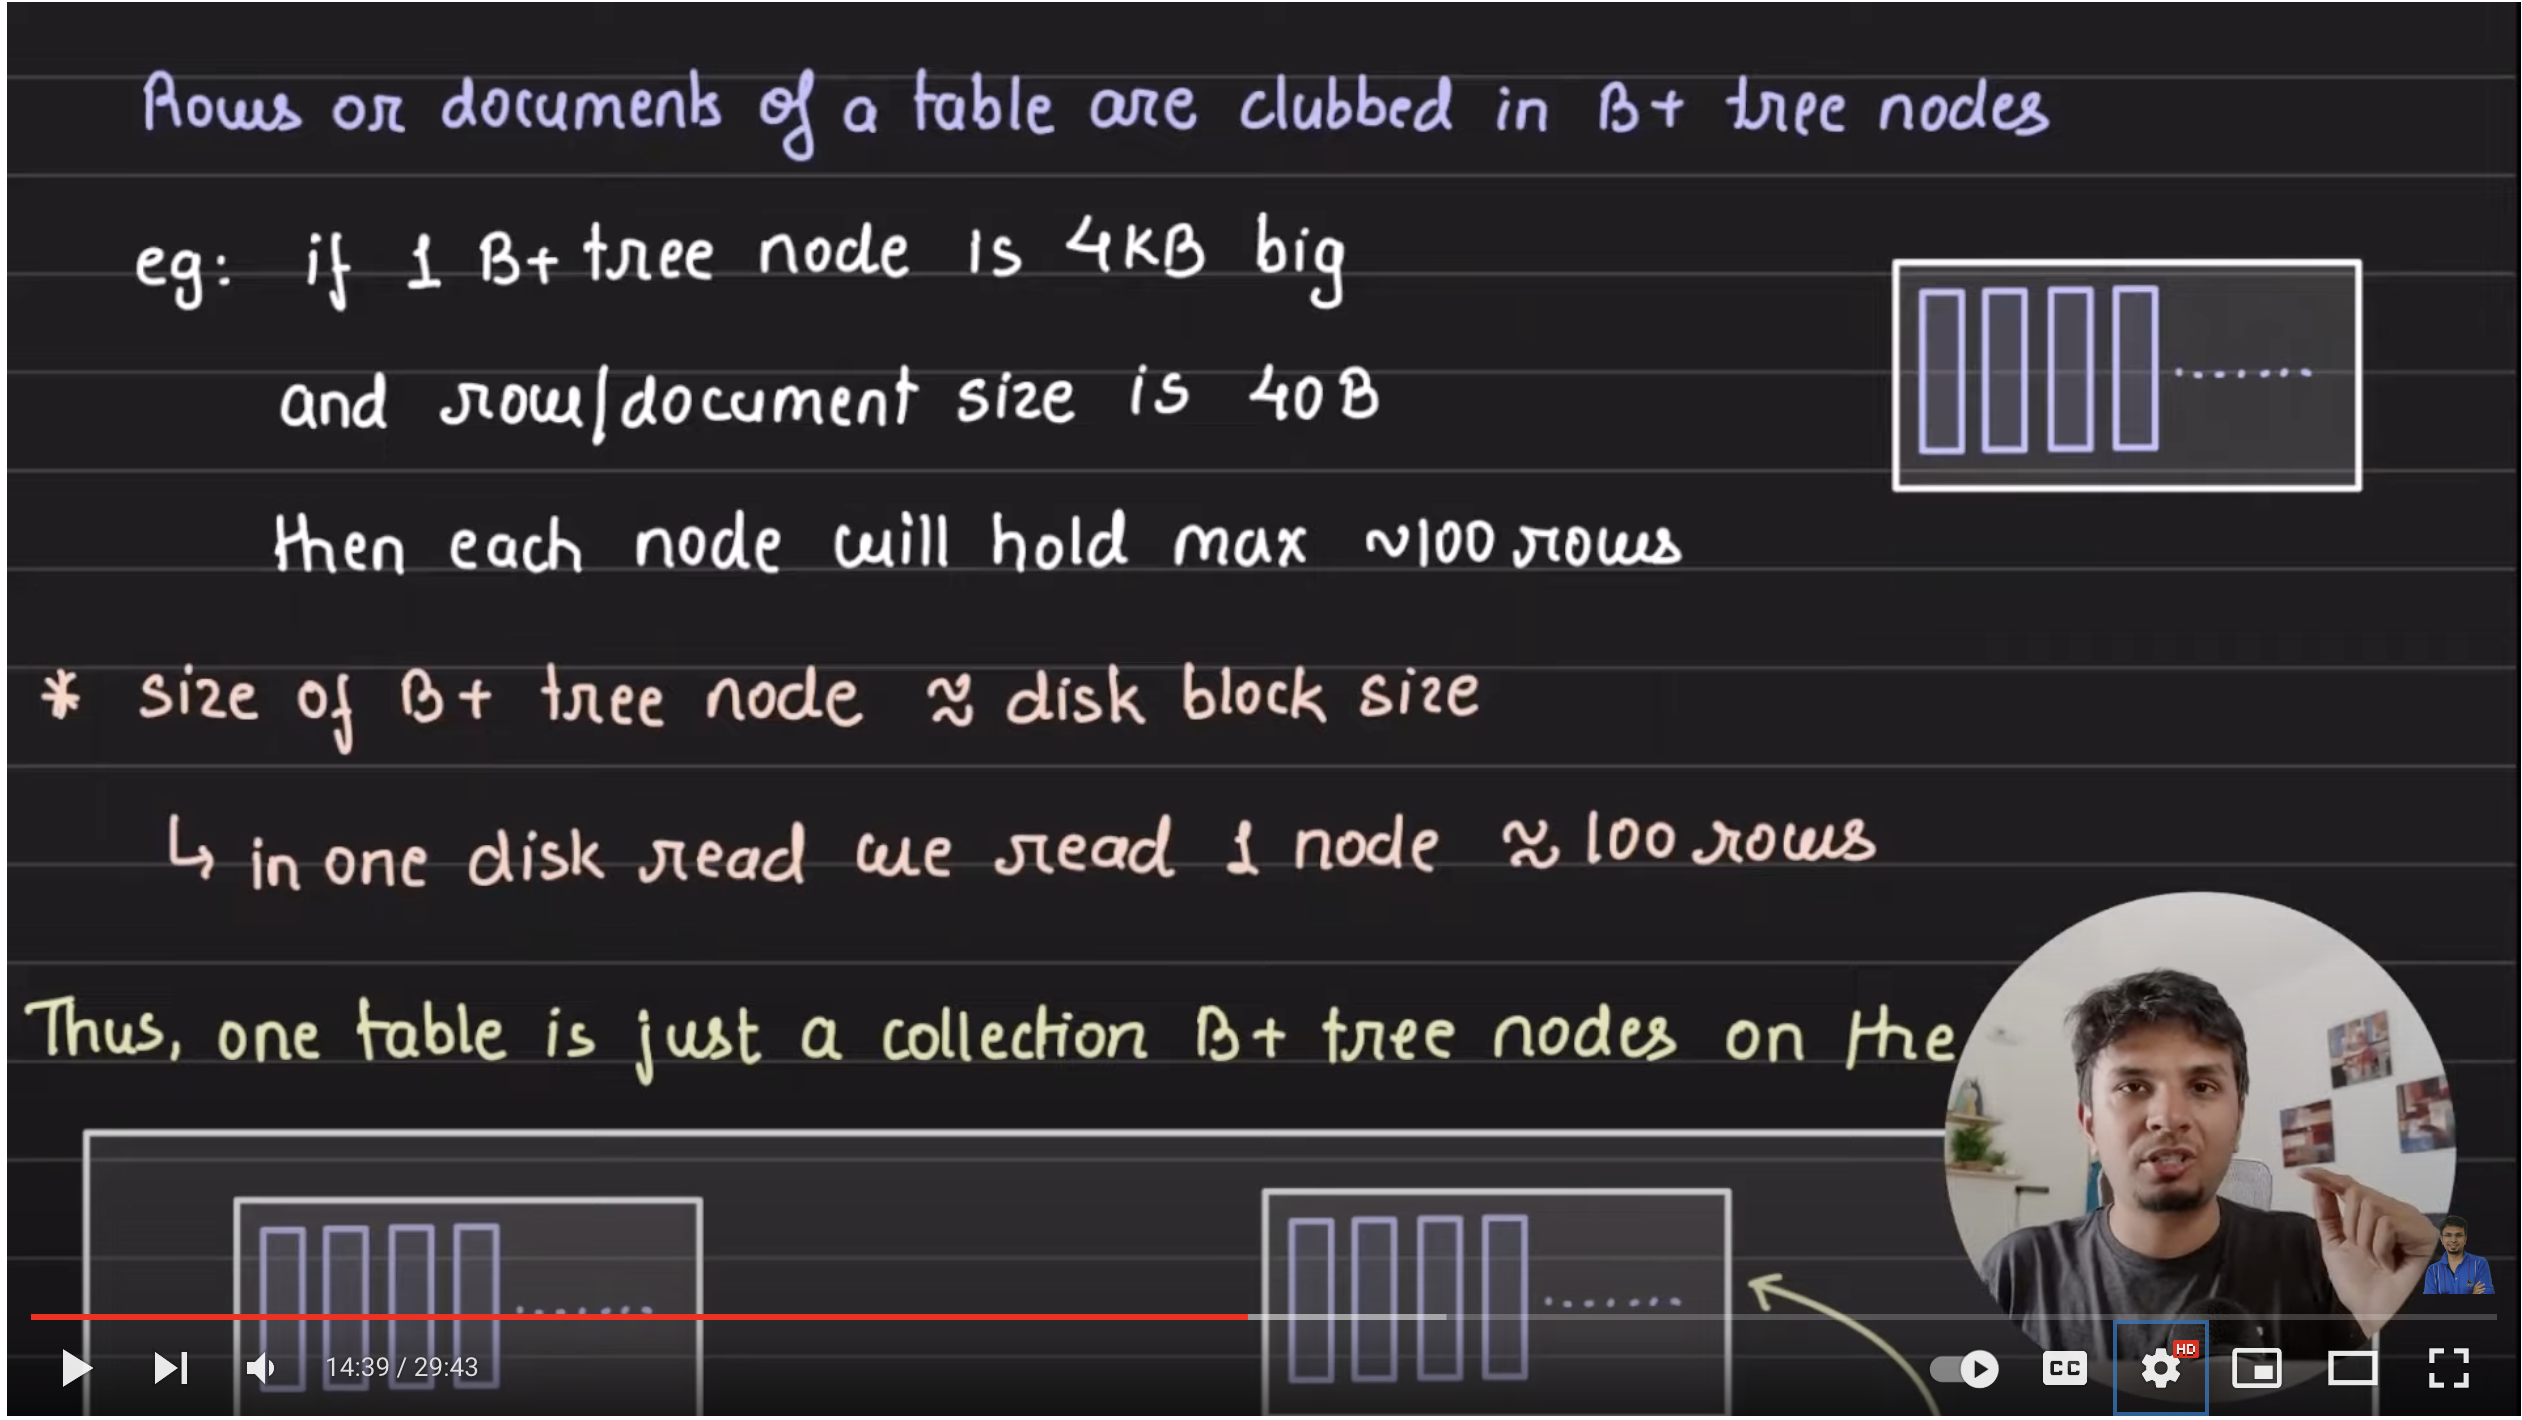 Rows or documents of a table are clubbed in B+ tree nodes
eg: if 1 B+ tree node is 4KB big
and row/document size is 40B
then each node will hold max ~100 rows
* size of B+ tree node ≈ disk block size
↳ in one disk read we read 1 node ≈ 100 rows
Thus, one table is just a collection B+ tree nodes on the
14:39 / 29:43
CC
HD